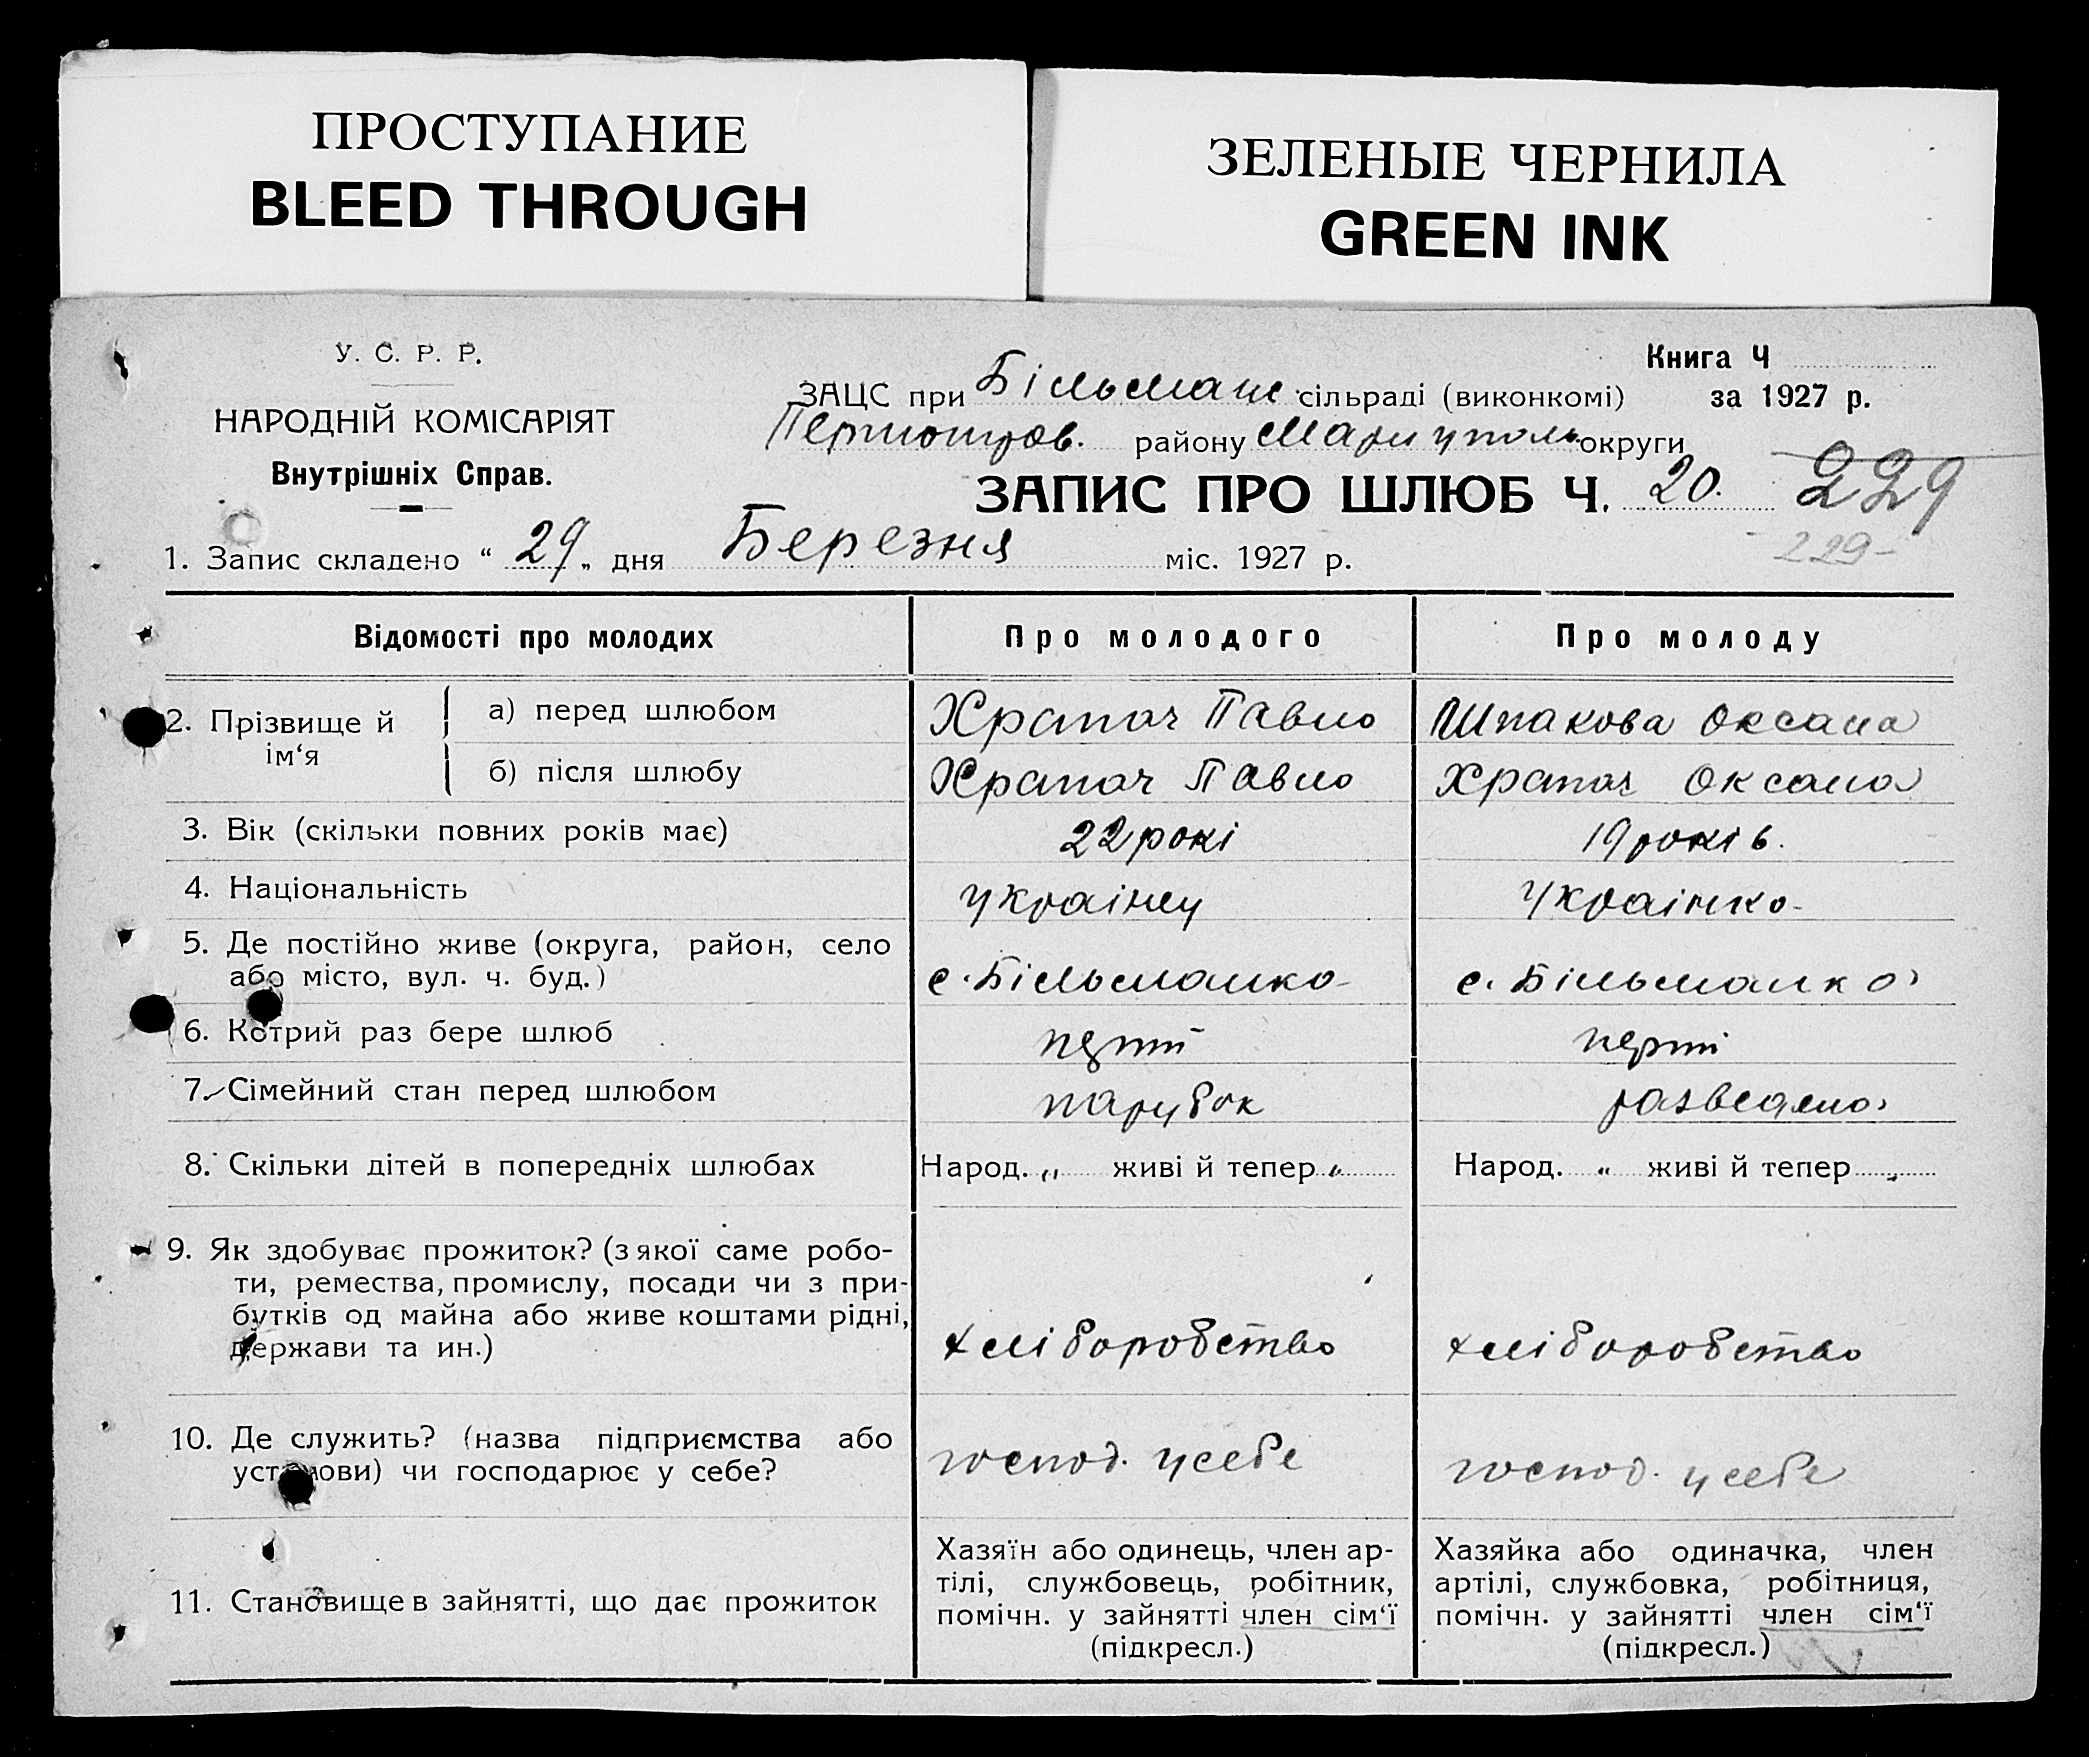 ПРОСТУПАНИЕ
BLEED THROUGH
ЗЕЛЕНЫЕ ЧЕРНИЛА
GREEN INK
У. С. Р. Р.
НАРОДНІЙ КОМІСАРІЯТ
Внутрішніх Справ.
Книга Ч
ЗАЦС при Більмаш сільраді (виконкомі) за 1927 р.
району Маріуполь округи
ЗАПИС ПРО ШЛЮБ Ч. 20. 229
229-
1. Запис складено “ 29 „ дня Березня міс. 1927 р.
Відомості про молодих Про молодого Про молоду
2. Прізвище й ім‘я
а) перед шлюбом Храпач Павло Шпакова Оксана
б) після шлюбу Храпач Павло Храпач Оксана
3. Вік (скільки повних років має) 22 рокі 19 років.
4. Національність українец українка
5. Де постійно живе (округа, район, село
або місто, вул. ч. буд.) с. Більманка с. Більманка
6. Котрий раз бере шлюб перші перші
7. Сімейний стан перед шлюбом парубок разведена
8. Скільки дітей в попередніх шлюбах Народ. „ живі й тепер „ Народ. „ живі й тепер „
9. Як здобуває прожиток? (з якої саме робо-
ти, ремества, промислу, посади чи з при-
бутків од майна або живе коштами рідні,
держави та ин.) хліборобство хліборобство
10. Де служить? (назва підприємства або
установи) чи господарює у себе? господ. у себе господ. у себе
11. Становище в зайнятті, що дає прожиток
Хазяїн або одинець, член ар-
тілі, службовець, робітник,
помічн. у зайнятті член сім‘ї
(підкресл.)
Хазяйка або одиначка, член
артілі, службовка, робітниця,
помічн. у зайнятті член сім‘ї
(підкресл.)